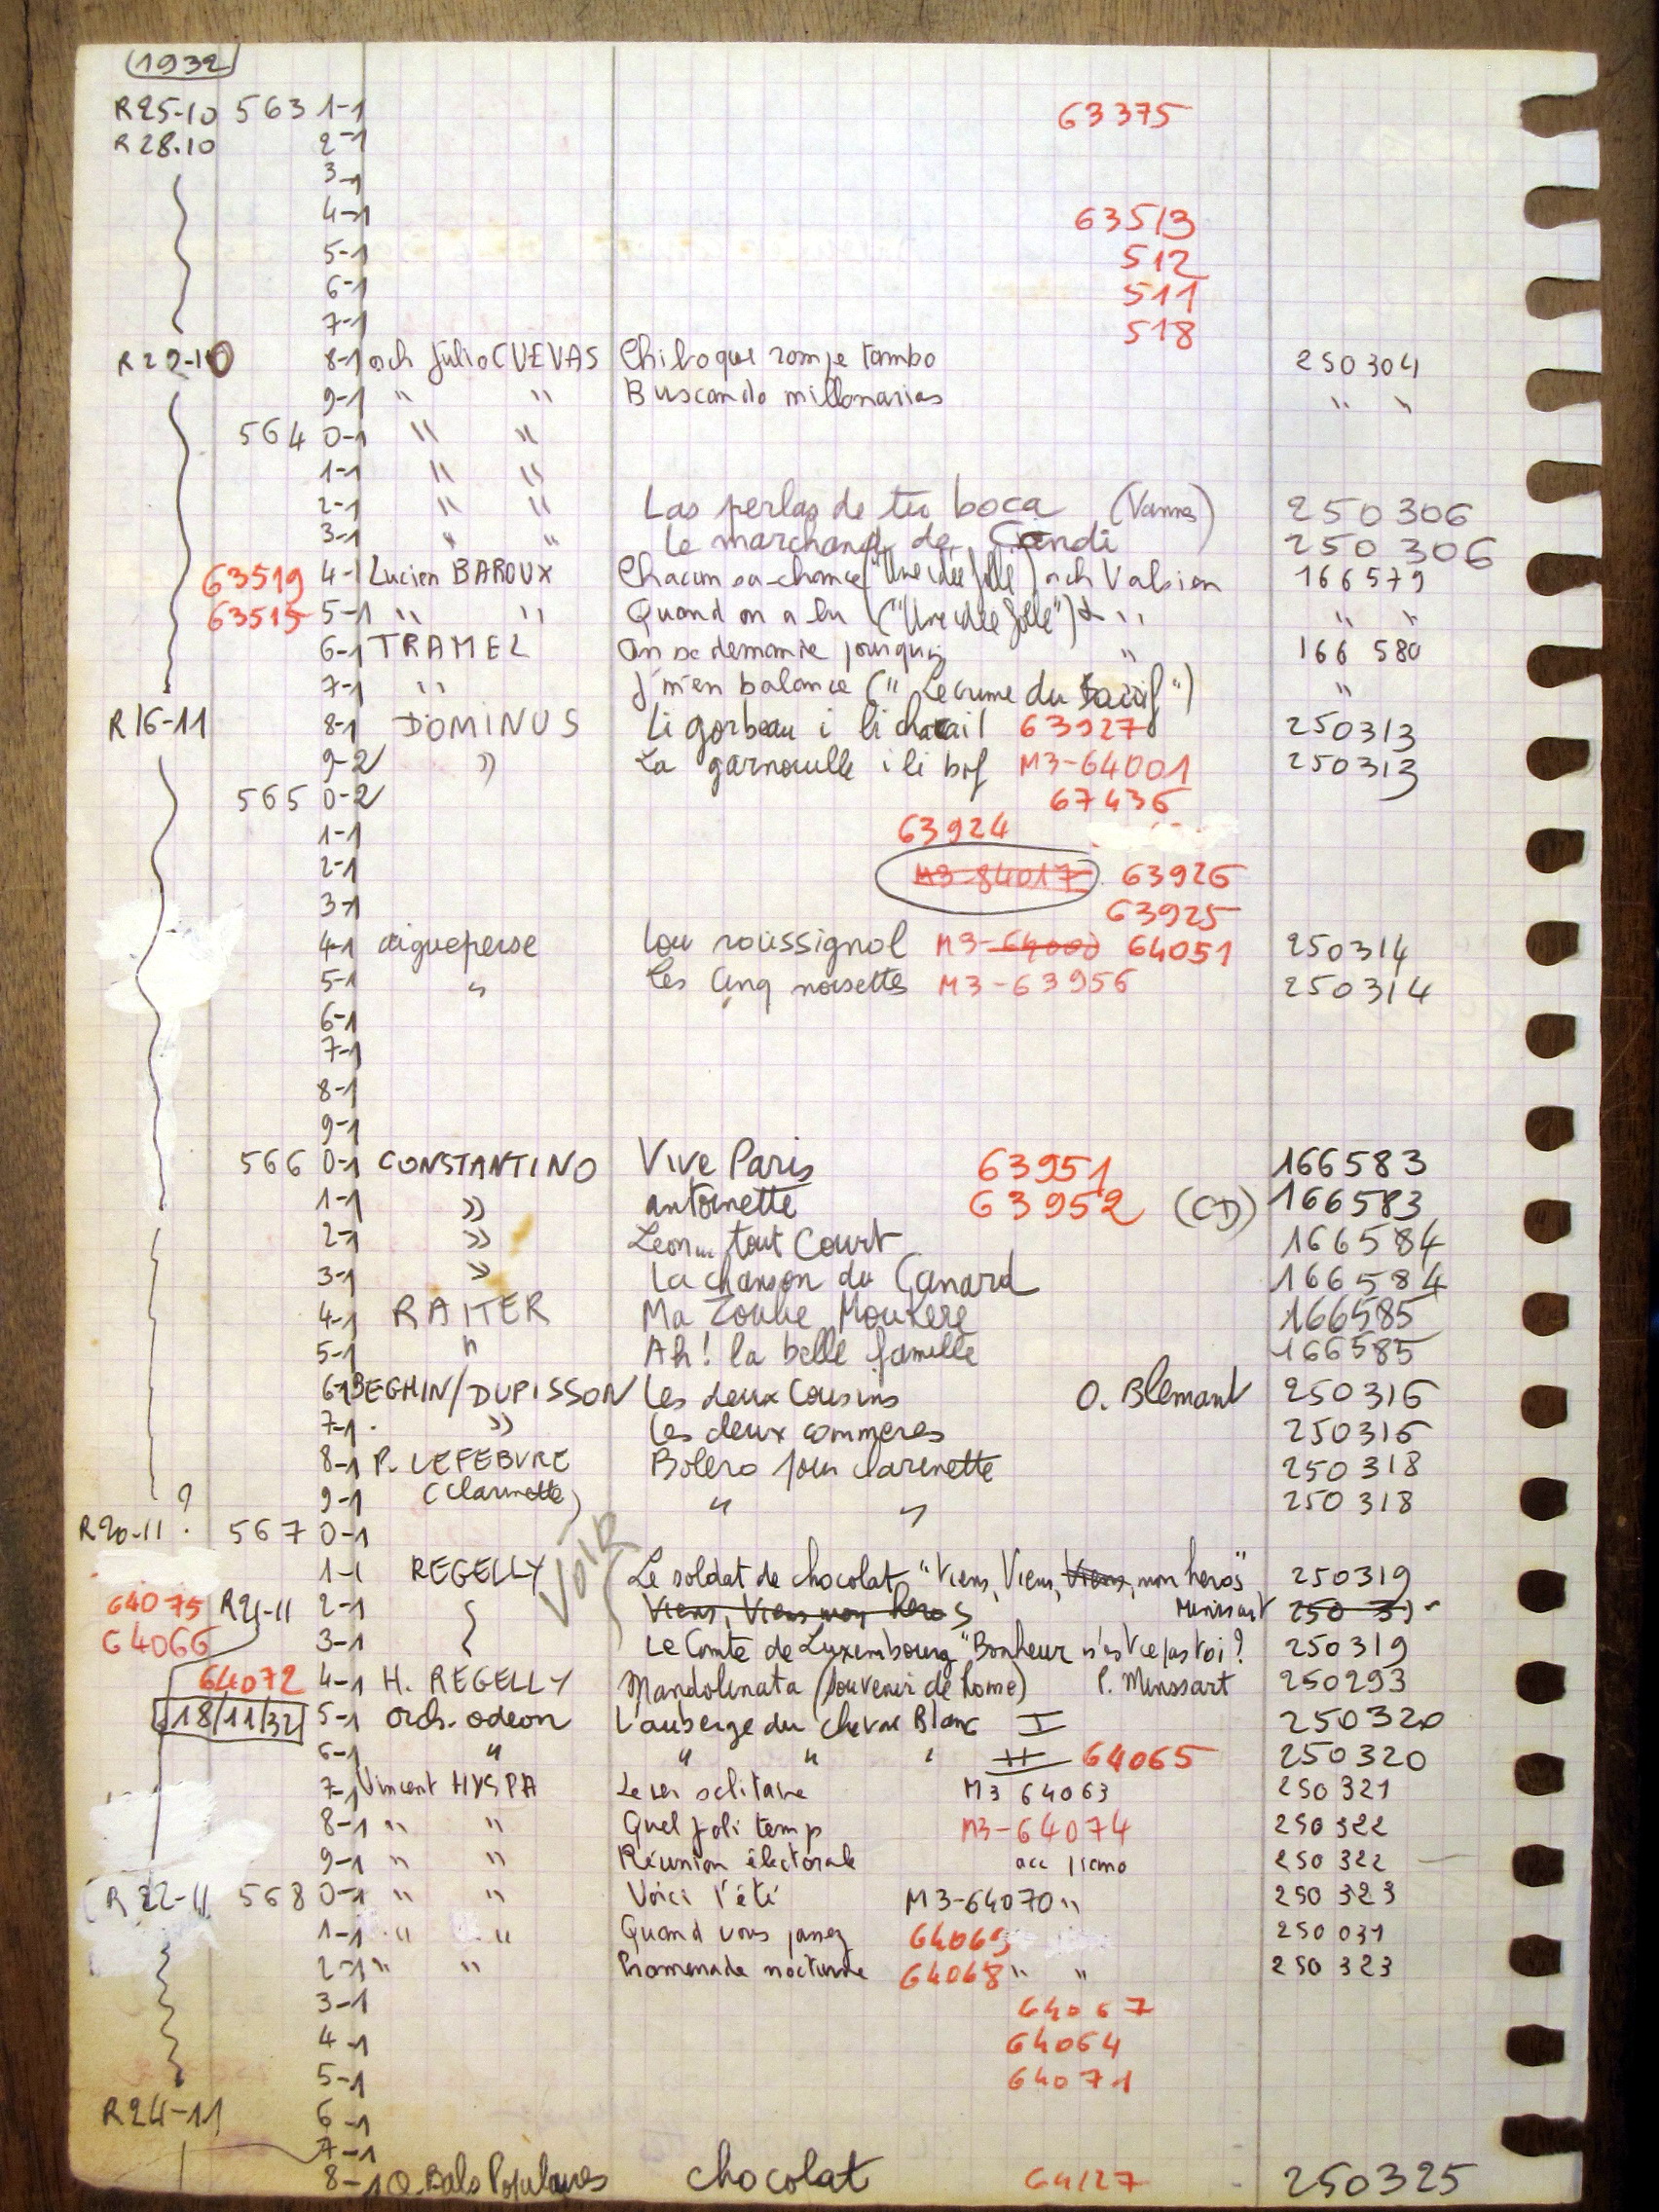 1932
R25-10 563 1-1 63375
R28.10 2-1
3-1
4-1 63513
5-1 512
6-1 511
7-1 518
R29-10 8-1 orch Julio CUEVAS Chiboque rompe tambo 250304
9-1 " " Buscando millonarias " "
564 0-1 " "
1-1 " "
2-1 " " Las perlas de tu boca (Vannes) 250306
3-1 " " Le marchand de Candi 250306
63519 4-1 Lucien BAROUX Chacun sa chance ("Une idée folle") orch Valsien 166579
63515 5-1 " " Quand on a lu ("Une idée folle") " " "
6-1 TRAMEL On se demande pourquoi " 166 580
7-1 " J'm'en balance (" Le crime du ") "
R16-11 8-1 DOMINUS Li gorbeau i li 63927 250313
9-2 " La garnouille i li bif M3-64001 250313
565 0-2 67436
1-1 63924
2-1 M3-84017 63926
3-1 63925
4-1 aigueperse Lou roussignol M3-64000 64051 250314
5-1 " Les cinq noisettes M3-63956 250314
6-1
7-1
8-1
9-1
566 0-1 CONSTANTINO Vive Paris 63951 166583
1-1 " antoinette 63952 (CD) 166583
2-1 " Leon... tout Court 166584
3-1 " La chanson du Canard 166584
4-1 RAITER Ma Zoubie Moukere 166585
5-1 " Ah! la belle famille 166585
6-1 BEGHIN/DUPISSON Les deux Cousins O. Blemant 250316
7-1 " Les deux commeres 250316
8-1 P. LEFEBVRE Bolero pour clarinette 250318
? 9-1 (Clarinette) " " 250318
R20-11. 567 0-1
VOIR
1-1 REGELLY Le soldat de chocolat "Viens, Viens, Viens, mon heros" 250319
64075 R21-11 2-1 Viens, Viens mon heros Minssart 250 31-
64066 3-1 Le Comte de Luxembourg "Bonheur n'est ce pas toi? 250319
64072 4-1 H. REGELLY Mandolinata (souvenir de Rome) P. Minssart 250293
18/11/32 5-1 Orch. odeon L'auberge du cheval Blanc I 250320
6-1 " " " " II 64065 250320
7-1 Vincent HYSPA Le ver solitaire M3 64063 250321
8-1 " " Quel joli temp M3-64074 250322
9-1 " " Réunion électorale acc piano 250 322
R22-11 568 0-1 " " Voici l'été M3-64070 " 250 323
1-1 " " Quand vous passez 64069 250 031
2-1 " " Promenade nocturne 64068 " " 250 323
3-1 64067
4-1 64064
5-1 64071
R24-11 6-1
7-1
8-1 O. Bals Populaires chocolat 64127 250325